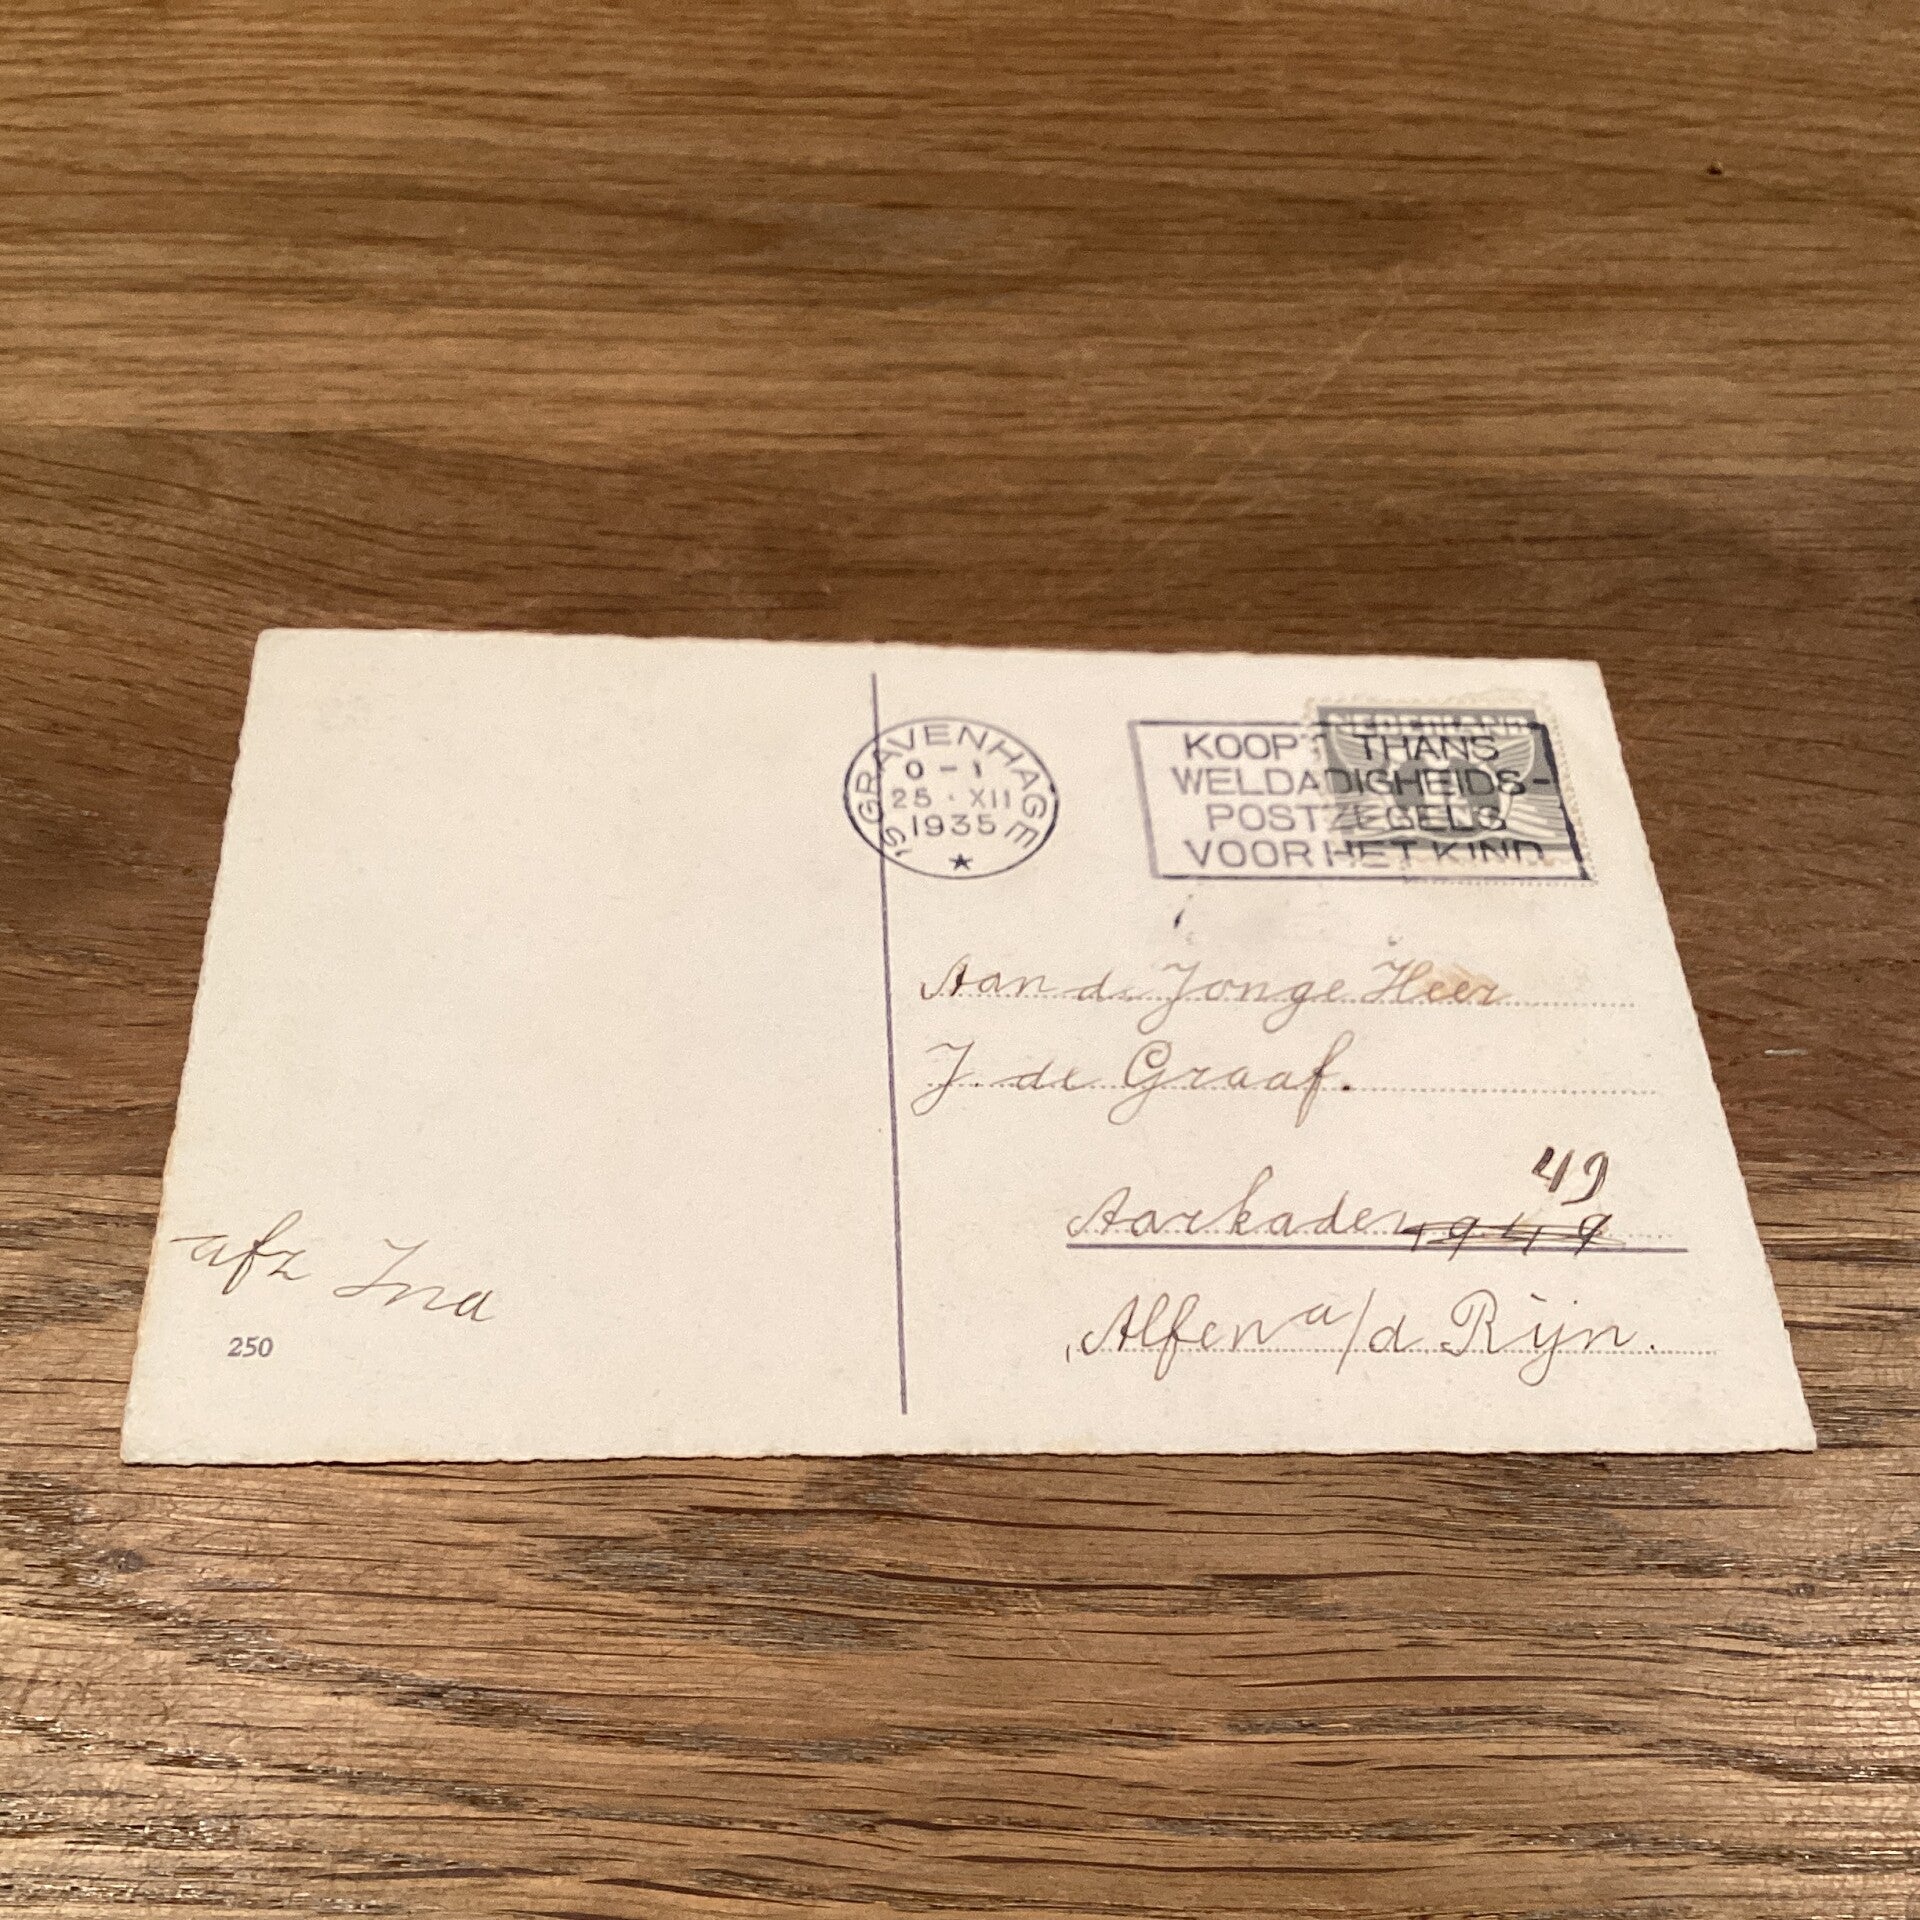 'S GRAVENHAGE
0 - 1
25 · XII
1935
NEDERLAND
KOOPT THANS
WELDADIGHEIDS-
POSTZEGELS
VOOR HET KIND
Aan de Jonge Heer
J. de Graaf.
49
Aarkade
Alfen a/d Rijn.
afz Ina
250